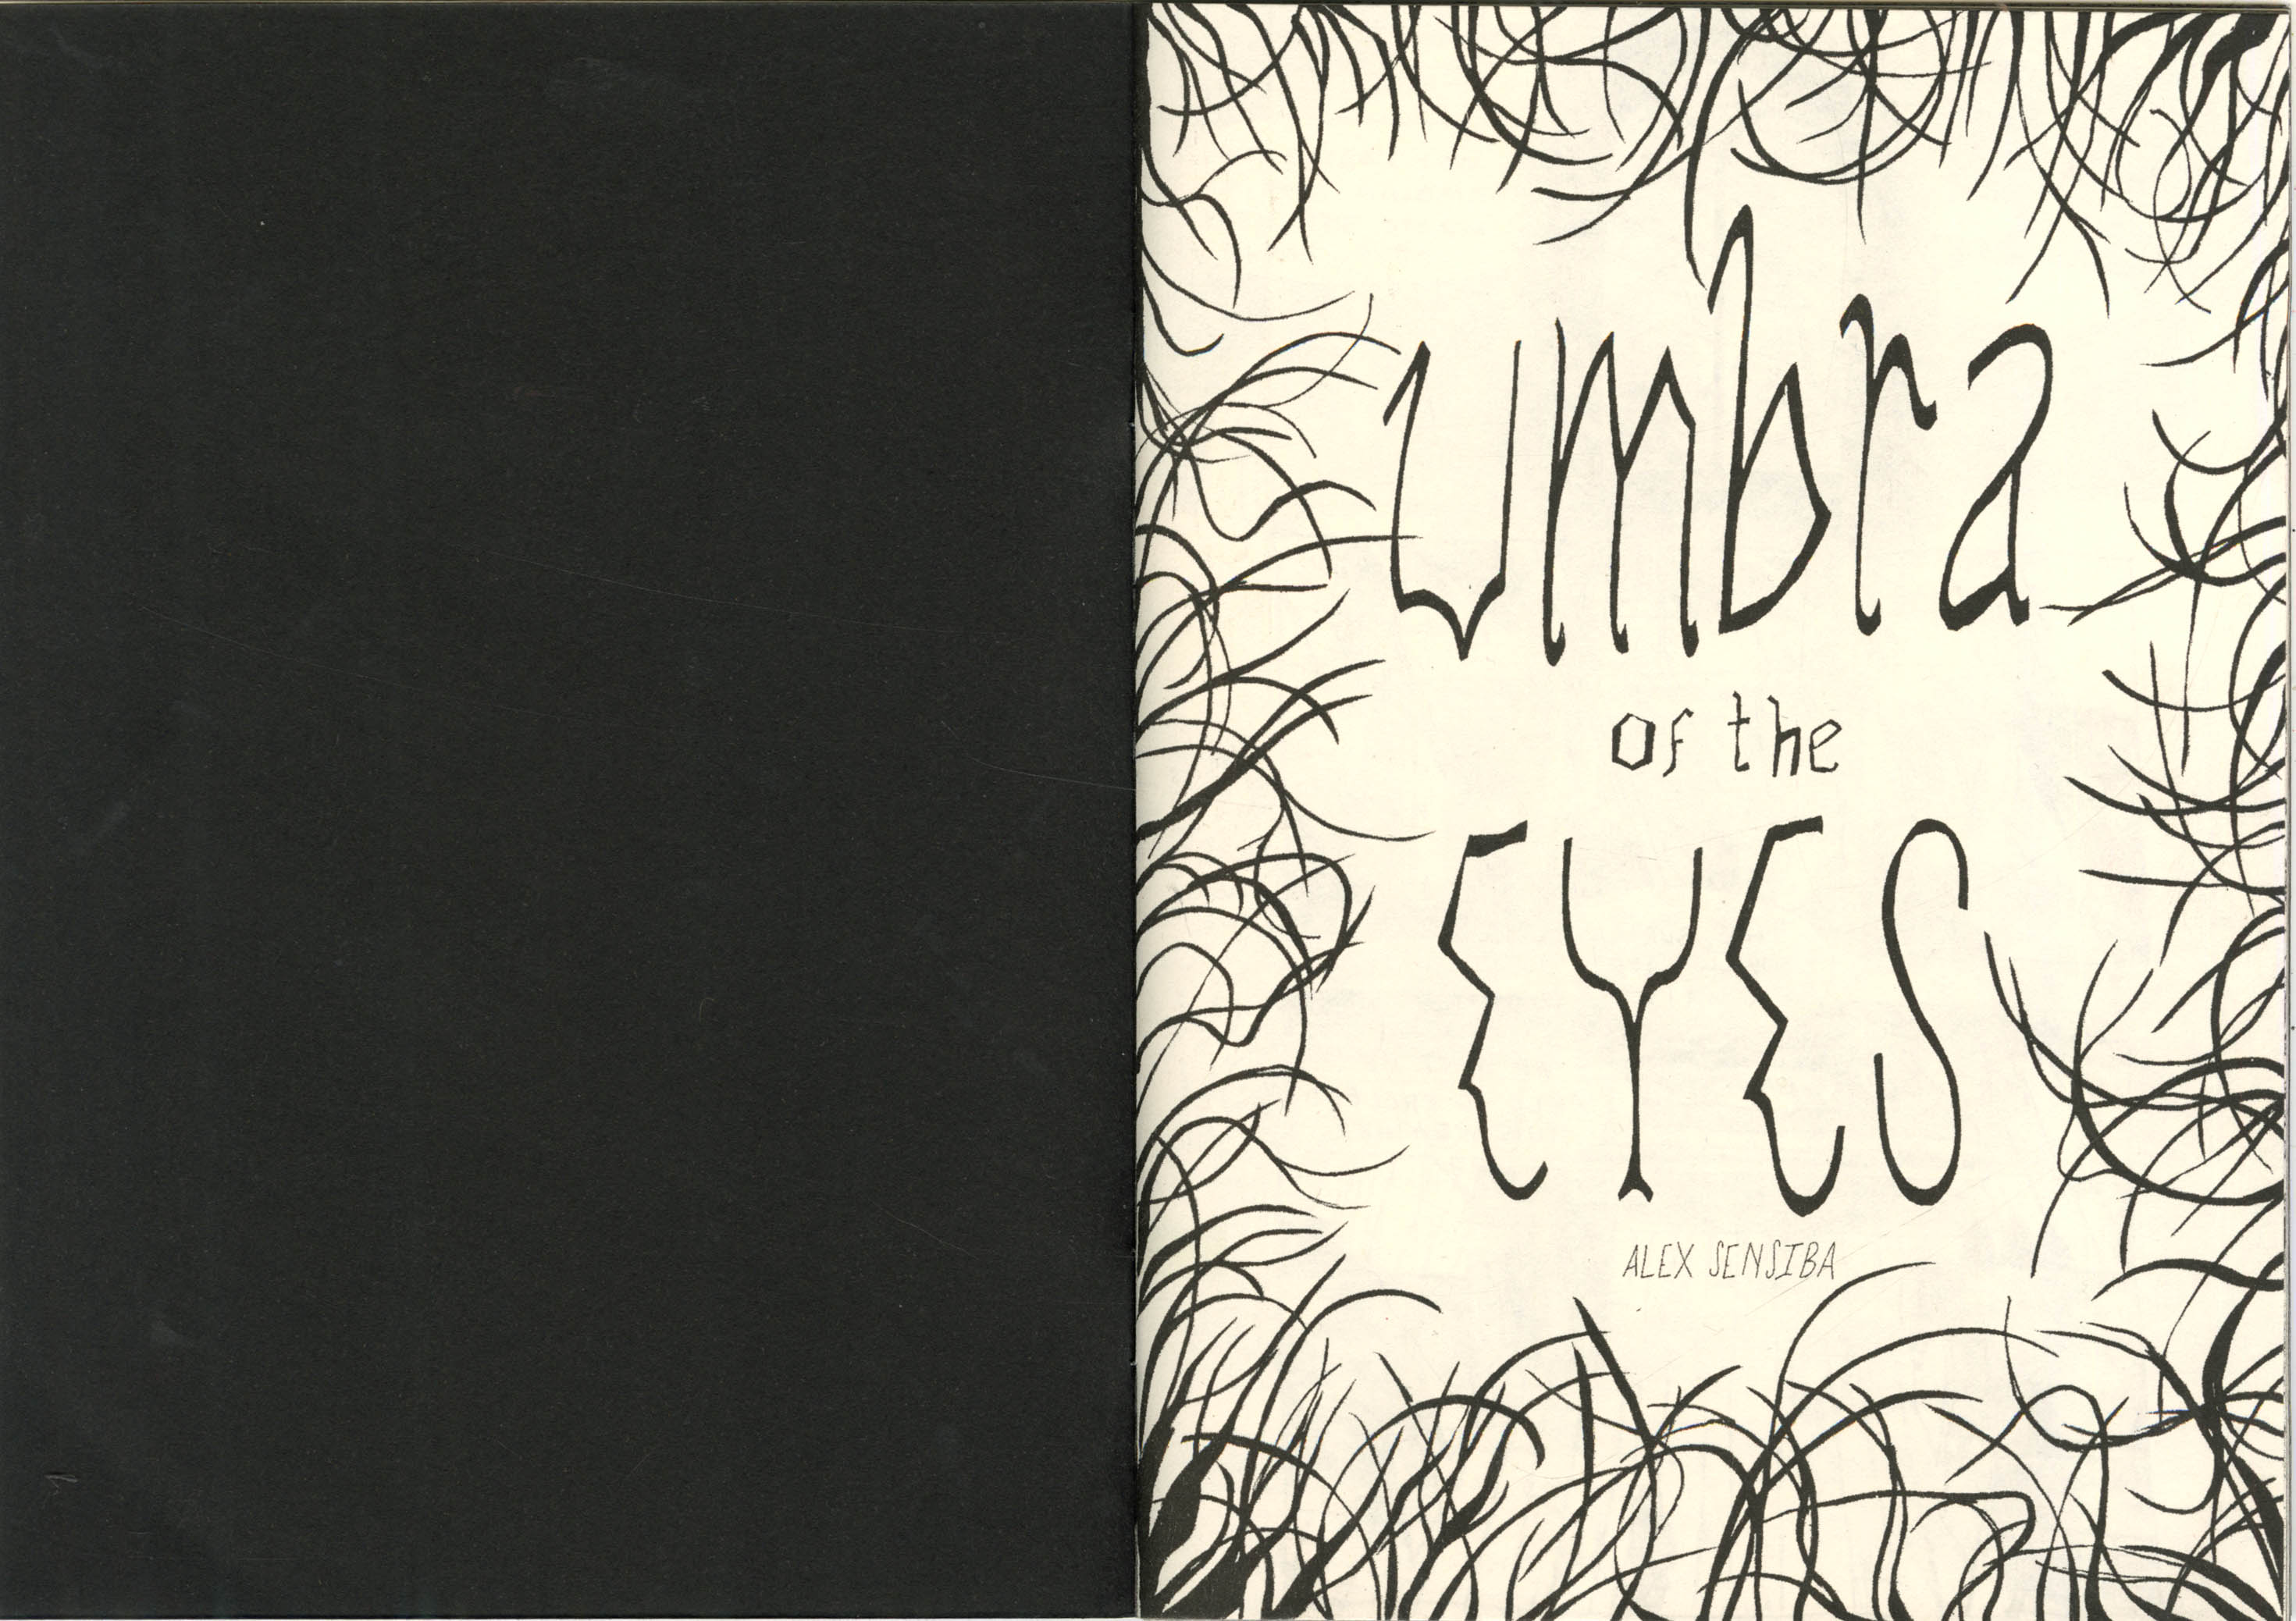 umbra
of the
EYES
ALEX SENSIBA